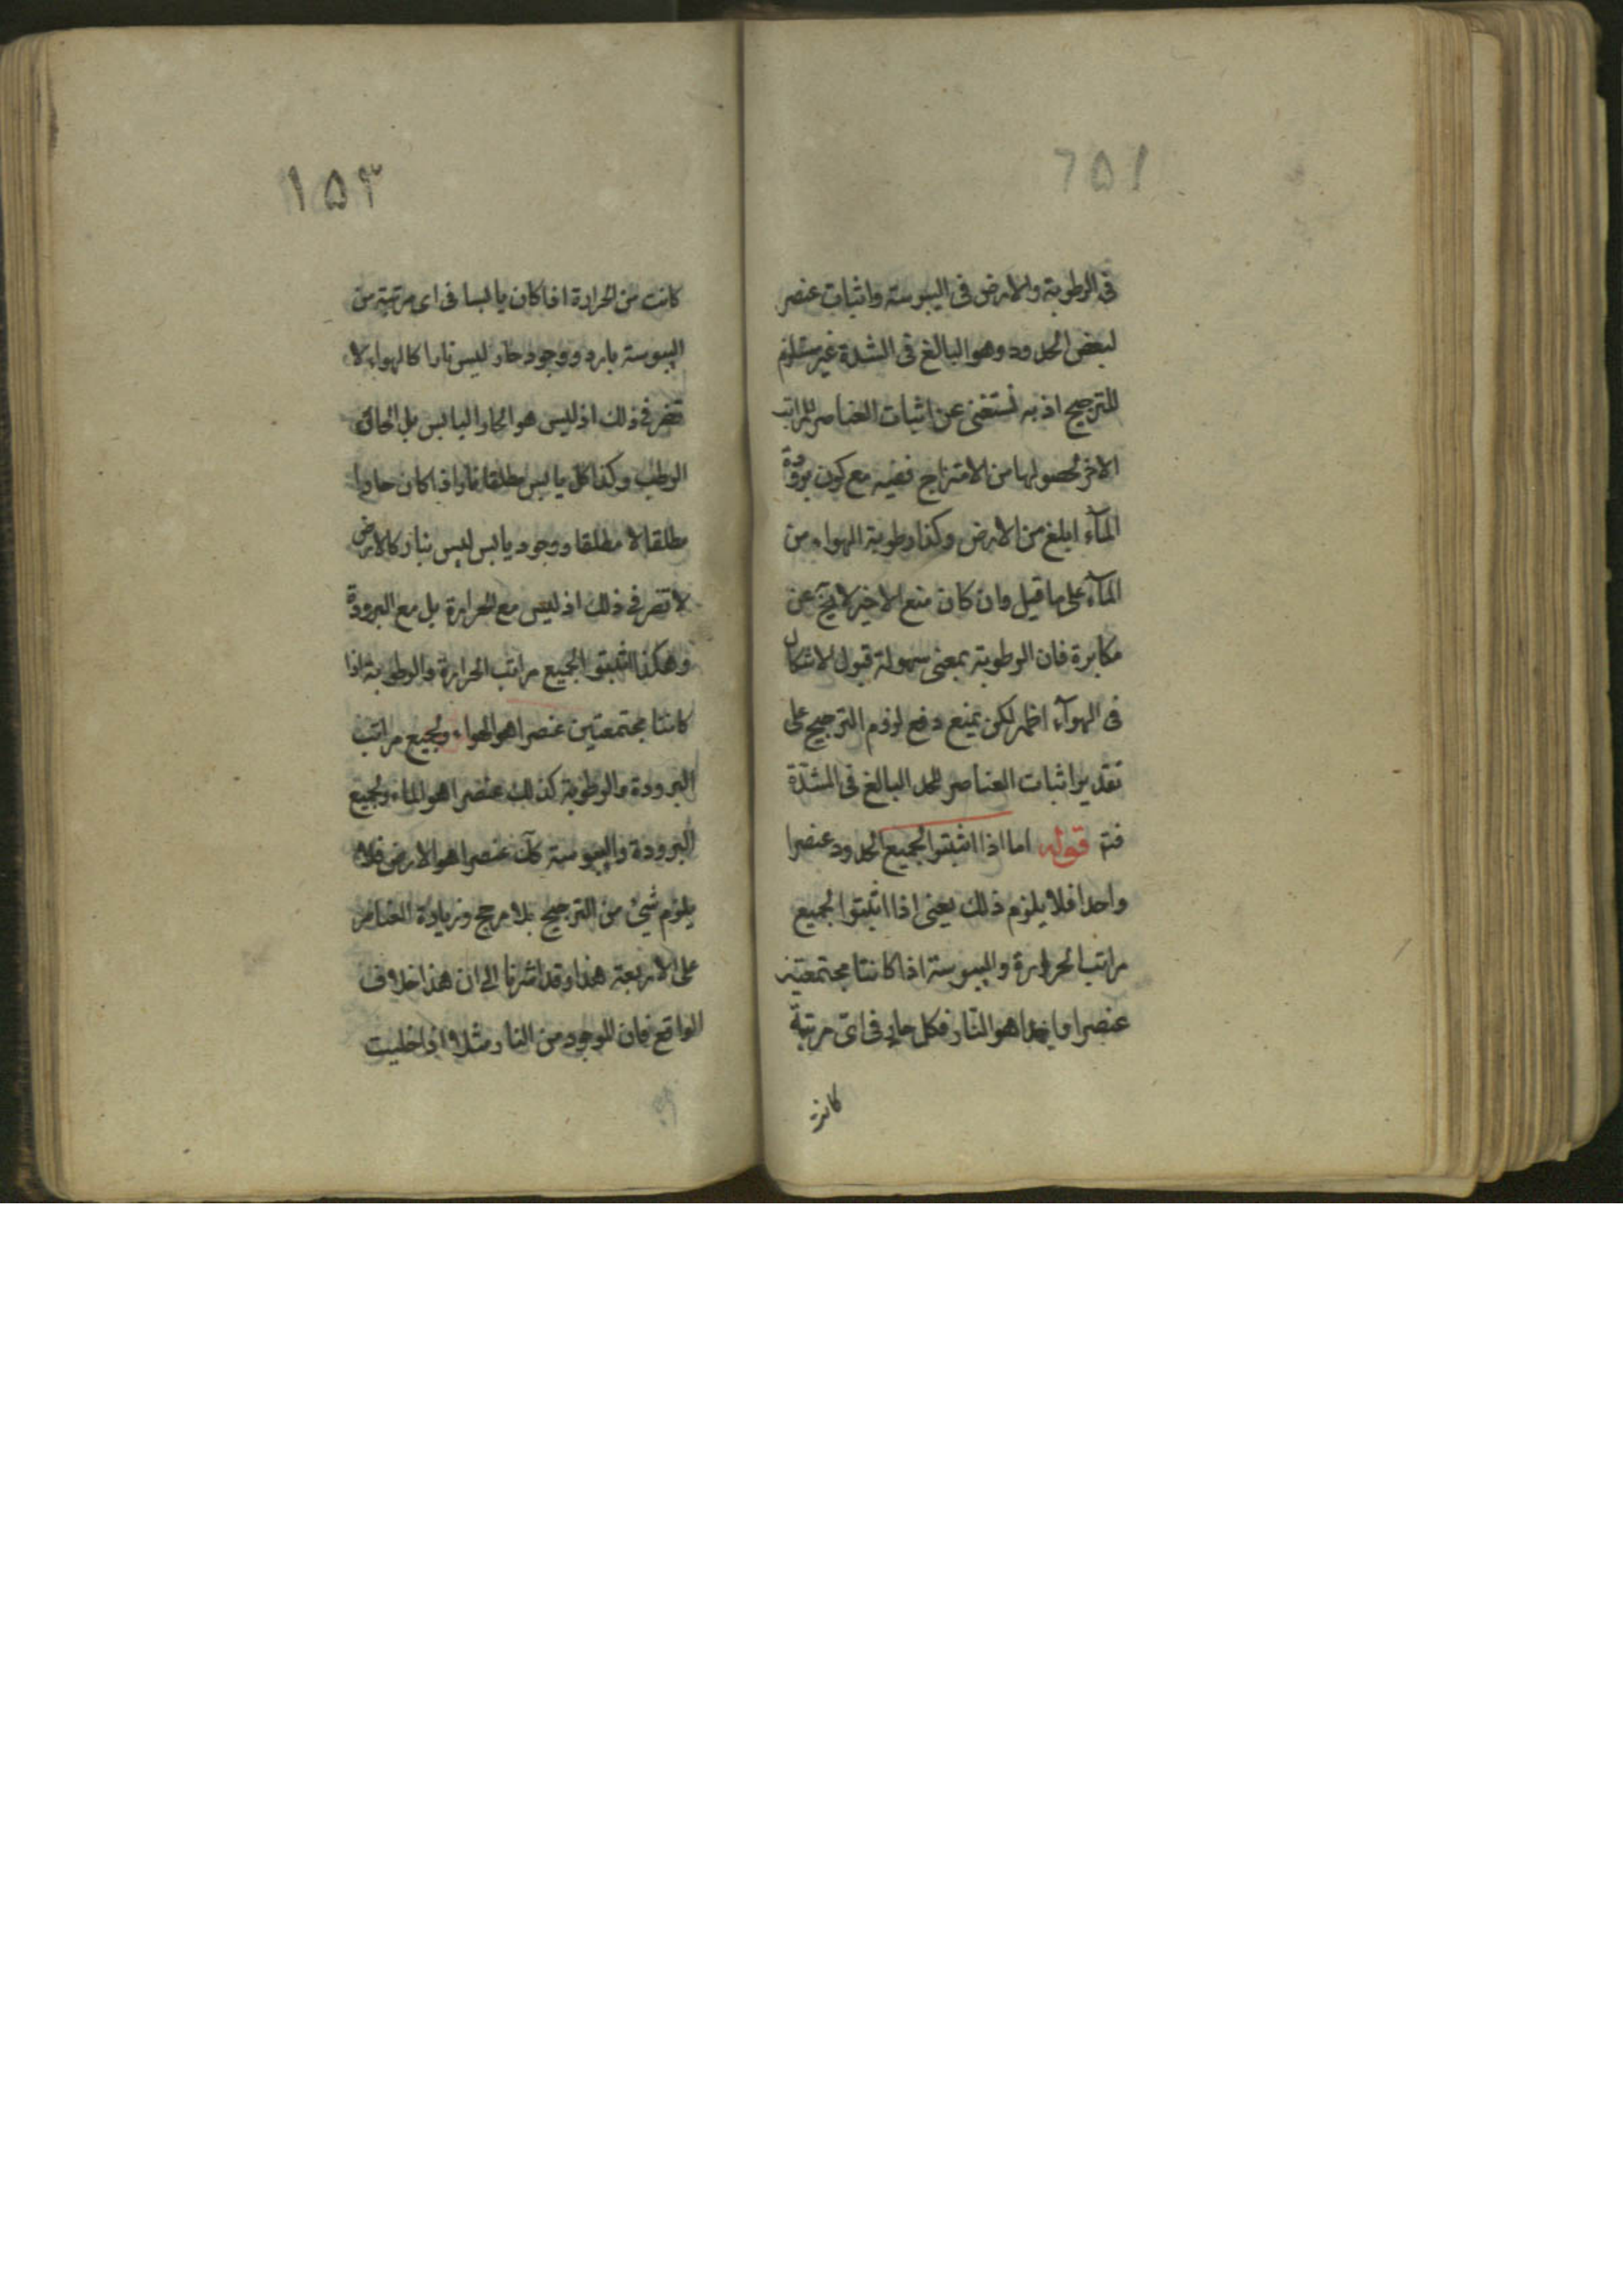 في الرطوبة والارض في اليبوسة واثبات عنصر
لبعض الحدود وهو البالغ في الشدة غير مستلزم
للترجيح اذ به نستغنى عن اثبات العناصر للمراتب
الاخر لحصولها من الامتزاج ففيه مع كون برودة
المآء ابلغ من الارض وكذا رطوبة الهواء من
المآء على ما قيل وان كان منع الاخير لا يخ عن
مكابرة فان الرطوبة بمعنى سهولة قبول الاشكال
في الهوآء اظهر لكن يمنع دفع لزوم الترجيح على
تقدير اثبات العناصر للحد البالغ في الشدّة
فتم قوله اما اذا اثبتوا لجميع الحدود عنصرا
واحدا فلا يلزم ذلك يعنى اذا اثبتوا لجميع
مراتب الحرارة واليبوسة اذا كانتا مجتمعتين
عنصرا واحدا هو النّار فكل حار في اىّ مرتبة
كانت
١٥٣
كانت من الحرارة اذا كان يابسا في اى مرتبة من
اليبوسة بارد ووجود حار ليس نارا كالهواء لا
تضر في ذلك اذ ليس هو الحار اليابس بل الحار
الرطب وكذا كل يابس مطلقا نار اذا كان حارا
مطلقا لا مطلقا ووجود يابس ليس بنار كالارض
لا تضر في ذلك اذ ليس مع الحرارة بل مع البرودة
وهكذا اثبتوا لجميع مراتب الحرارة والرطوبة اذا
كانتا مجتمعتين عنصرا هو الهواء ولجميع مراتب
البرودة والرطوبة كذلك عنصرا هو الماء ولجميع
البرودة واليبوسة كك عنصرا هو الارض فلا
يلزم شئ من الترجيح بلا مرجح وزيادة العناصر
على الاربعة هذا وقد اشرنا الى ان هذا خلاف
الواقع فان الموجود من النار مثلا اذا خليت